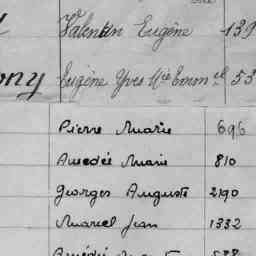 Valentin Eugène 139
ony Eugène Yves Mie Emm el 53
Pierre Marie 696
Amedée Marie 810
Georges Auguste 2190
Marcel Jean 1332